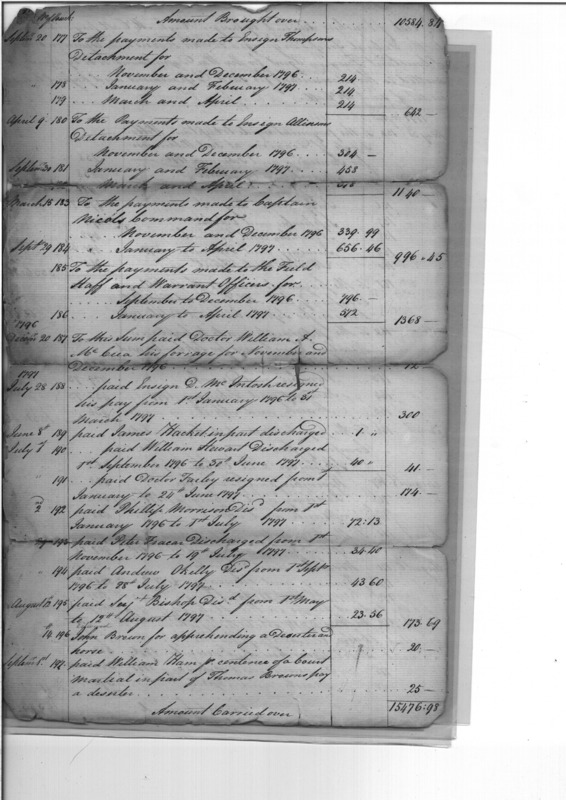 Amount Brought over 10584.84
Septemr 20 177 To the payments made to Ensign Thompsons
Detachment for
November and December 1796 214
178 January and February 1797 214
179 March and April 214 642 —
April 9 180 To the Payments made to Ensign Allisons
Detachment for
November and December 1796 304 —
Septemr 20 181 January and February 1797 458
March and April 1140 —
March 18 183 To the payments made to Captain
Nicols Command for
November and December 1796 339.99
Septr 29 184 January to April 1797 656.46 996.45
185 To the payments made to the Field
Staff and Warrant Officers for
September to December 1796 796 —
186 January to April 1797 572 1368 —
1796
Decemr 20 187 To this Sum paid Doctor William A.
Mc Crea his forrage for November and
December 1796 12
1797
July 28 188 paid Ensign D. McIntosh resigned
his pay from 1st January 1796 to 31
March 1797 300
June 8th 189 paid James Hacket in part discharged 1 "
July 1st 190 paid William Stewart Discharged
1st September 1796 to 30th June 1797 40 " 41 —
191 paid Doctor Farley resigned from 1
January to 24th June 1797 174 —
2nd 192 paid Phillip Morrison Disd from 1st
January 1796 to 1st July 1797 72.13
193 paid Peter Discharged from 1st
November 1796 to 19th July 1797 34.40
194 paid Andrew Okelly Disd from 1st Septr
1796 to 28th July 1797 43.60
August 13 195 paid Serjt Bishop Disd from 1st May
to 12th August 1797 23.56 173.69
14 196 John Brown for apprehending a Deserter and
horse 20 —
Septemr 1st 197 paid William Ham pr centence of a Court
Martial in part of Thomas Browns pay
a deserter 25 —
Amount Carried over 15476.98